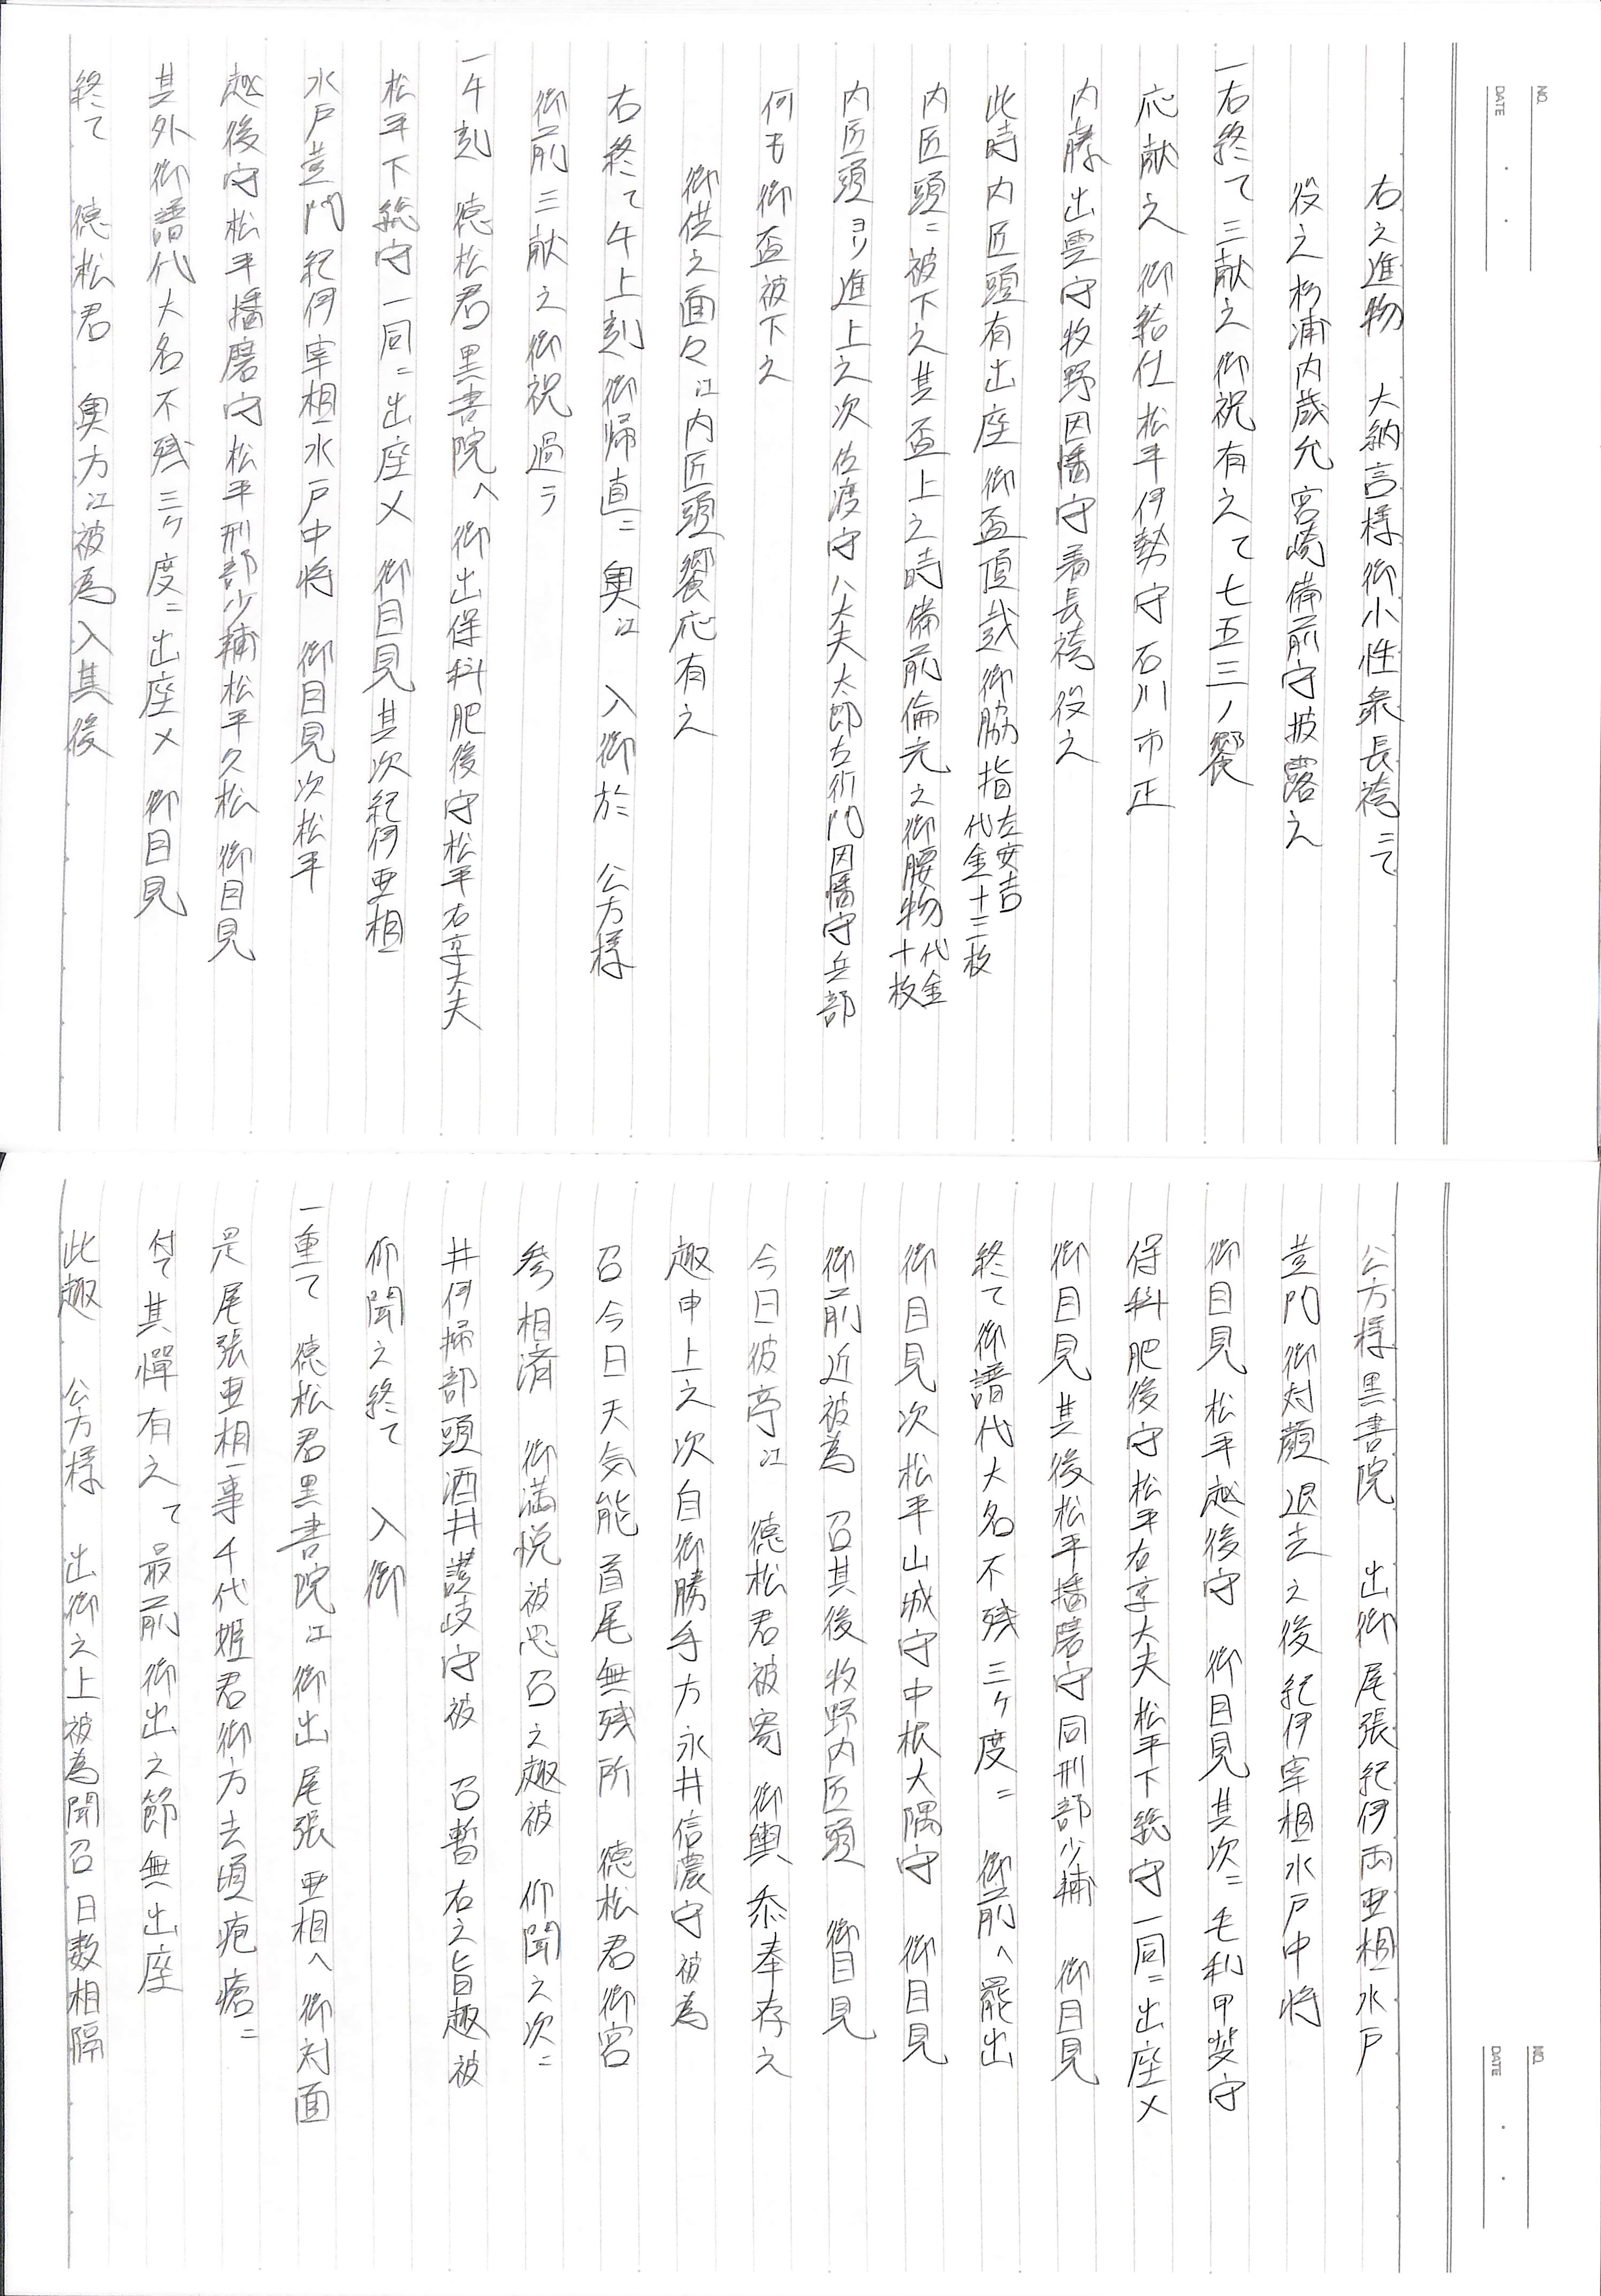 NO.
DATE
右之進物　大納言様御小性衆長袴ニて
役之杉浦内蔵允宮崎備前守披露之
一右終て三献之御祝有之て七五三ノ饗
応献之　御給仕松平伊勢守石川市正
内藤出雲守牧野因幡守着長袴役之
此時内匠頭有出座御盃頂戴御脇指左安吉代金十三枚
内匠頭ニ被下之其盃上之時備前倫光之御腰物代金十枚
内匠頭ヨリ進上之次佐渡守八太夫太郎左衛門因幡守兵部
何も御盃被下之
御供之面々江内匠頭饗応有之
右終て午上刻御帰直ニ奥江　入御於　公方様
御前三献之御祝過テ
一午刻　徳松君黒書院へ御出保科肥後守松平右京大夫
松平下総守一同ニ出座〆　御目見其次紀伊亜相
水戸黄門紀伊宰相水戸中将　御目見次松平
越後守松平播磨守松平刑部少輔松平久松　御目見
其外御譜代大名不残三ケ度ニ出座〆　御目見
終て　徳松君　奥方江被為入其後
NO.
DATE
公方様黒書院　出御尾張紀伊両亜相水戸
黄門御対顔退去之後紀伊宰相水戸中将
御目見松平越後守　御目見其次ニ毛利甲斐守
保科肥後守松平右京大夫松平下総守一同ニ出座〆
御目見其後松平播磨守同刑部少輔　御目見
終て御譜代大名不残三ケ度ニ　御前へ罷出
御目見次松平山城守中根大隅守　御目見
御前近被為　召其後牧野内匠頭　御目見
今日彼亭江　徳松君被寄　御輿忝奉存之
趣申上之次自御勝手方永井信濃守被為
召今日天気能首尾無残所　徳松君御宮
参相済　御満悦被思召之趣被　仰聞之次ニ
井伊掃部頭酒井讃岐守被　召暫右之旨趣被
仰聞之終て　入御
一重て　徳松君黒書院江御出尾張亜相へ御対面
是尾張亜相事千代姫君御方去頃疱瘡ニ
付て其憚有之て最前御出之節無出座
此趣　公方様　出御之上被為聞召日数相隔